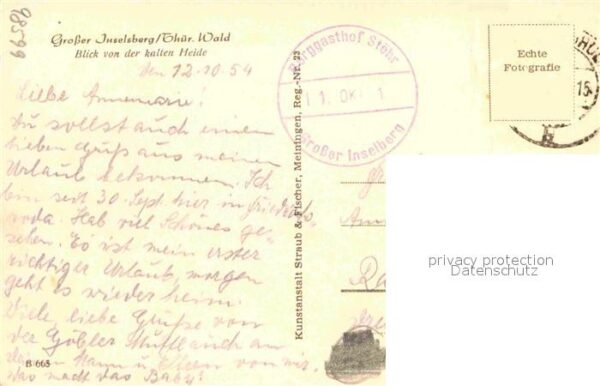 98599
Großer Inselsberg/Thür. Wald
Blick von der kalten Heide
den 12.10.54
Liebe Annemarie!
Du sollst auch einen
lieben Gruß aus meinem
Urlaub bekommen. Ich
bin seit 30. Sept. hier in Friedrich-
roda. Hab viel Schönes ge-
sehen. Es ist mein erster
richtiger Urlaub, morgen
geht es wieder heim.
Viele, liebe Grüße von
der
auch an
Mann u. Eltern von mir.
was macht das Baby?
B 665
Kunstanstalt Straub & Fischer, Meiningen, Reg.-Nr. 23
Berggasthof Stöhr
11. OKT. 1
Großer Inselberg
Echte
Fotografie
privacy protection
Datenschutz